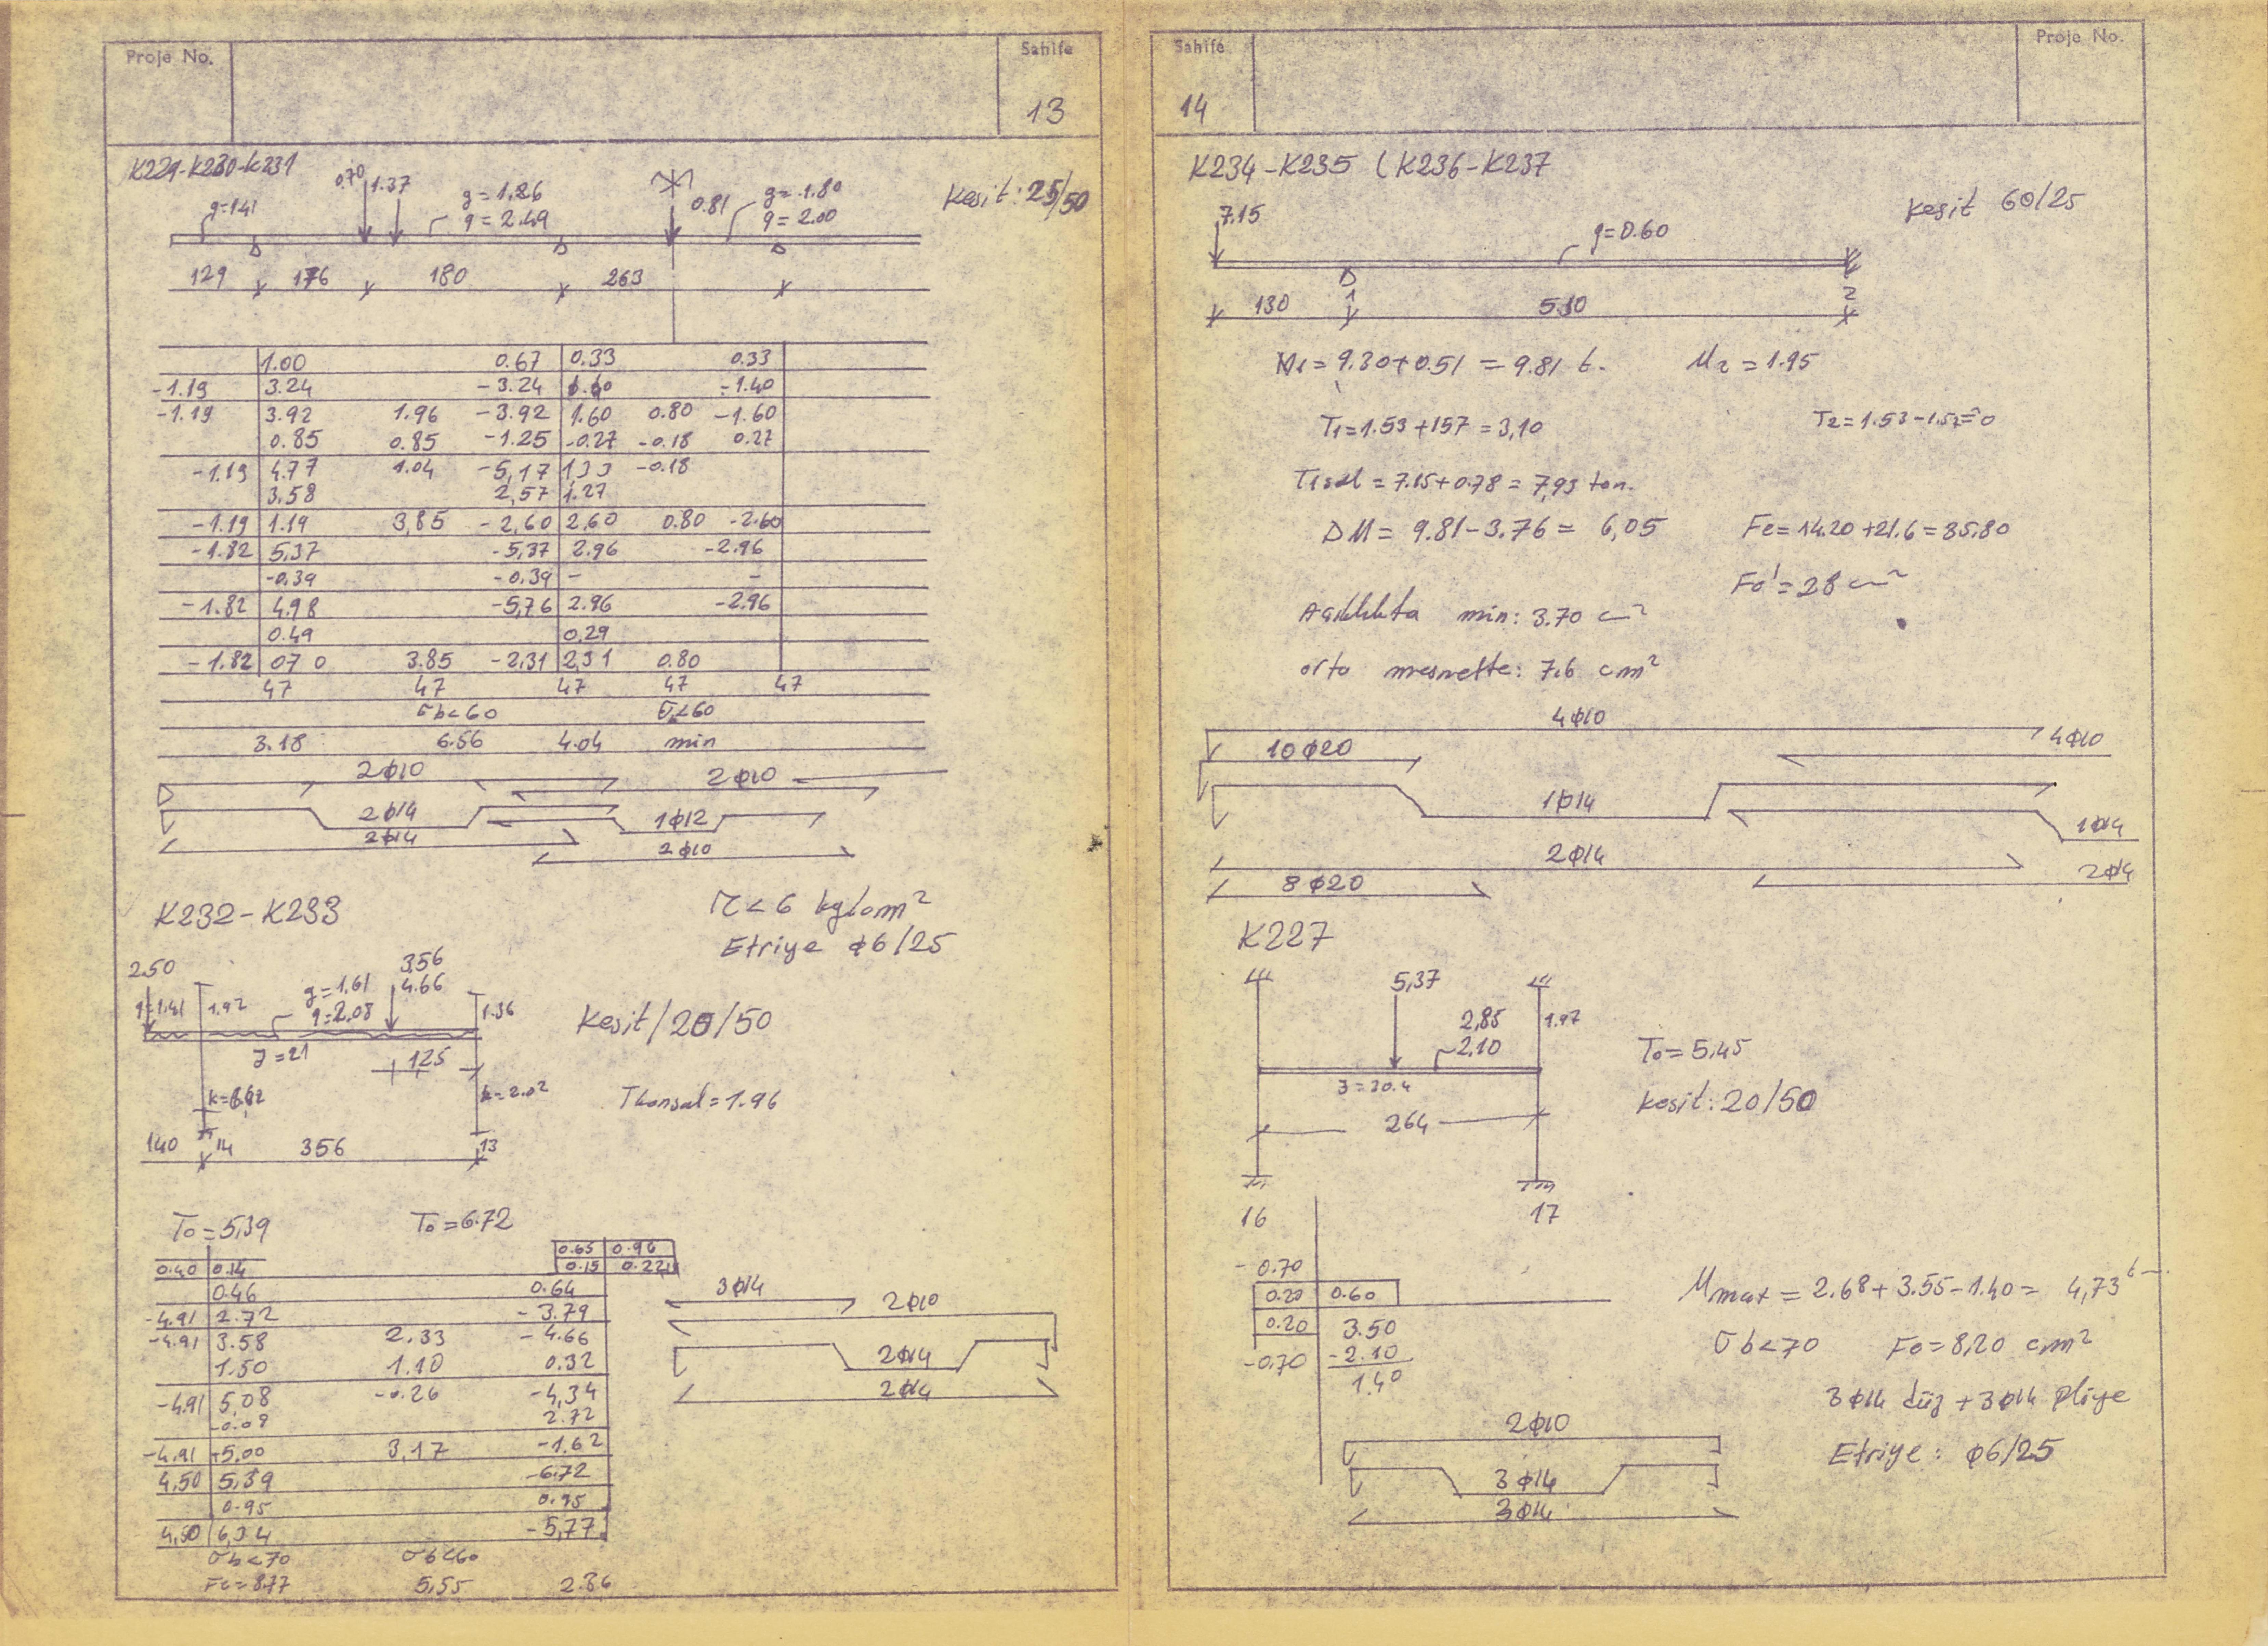 Proje No.
Sahife
13
K229-K230-K231
0.70
1.37
g=1,26
q=2.49
g=141
0.81
g=1.80
q=2.00
Kesit: 25/50
129
176
180
263
1.00 0.67 0.33 0.33
-1.19 3.24 -3.24 -1.40
-1.19 3.92 1.96 -3.92 1.60 0.80 -1.60
0.85 0.85 -1.25 -0.27 -0.18 0.27
-1.19 4.77 1.04 -5,17 1,33 -0.18
3.58 2,57 1.27
-1.19 1.19 3,85 -2,60 2,60 0.80 -2.60
-1.82 5,37 -5,37 2.96 -2.96
-0.39 -0.39 - -
-1.82 4.98 -5,76 2.96 -2.96
0.49 0.29
-1.82 07 0 3.85 -2,31 2,31 0.80
47 47 47 47 47
σb<60 σ<60
3.18 6.56 4.04 min
2ϕ10
2ϕ10
2ϕ14
1ϕ12
2ϕ14
2ϕ10
K232-K233
τ<6 kg/cm²
Etriye ϕ6/25
2.50
g=1.41
1.92
g=1.61
q=2.08
3.56
4.66
1.36
Kesit/20/50
J=21
125
k=2.02
Tkonsol=1.96
140
14
356
13
To=5,39
To=6.72
0.65 0.96
0.15 0.22
0.40 0.14
0.46 0.64
-4.91 2.72 -3.79
-4.91 3.58 2.33 -4.66
1.50 1.10 0.32
-4.91 5,08 -0.26 -4,34
-0.08 2.72
-4.91 +5.00 3,17 -1.62
4,50 5,39 -6.72
0.95 0.95
4,50 6,34 -5,77
σb<70 σb<60
Fe=8.77 5,55 2.86
3ϕ14
2ϕ10
2ϕ14
2ϕ14
Sahife
Proje No.
14
K234-K235 (K236-K237
kesit 60/25
7.15
q=0.60
130
1
530
2
M1=9.30+0.51=9.81 t.
M2=1.95
T1=1.53+157=3,10
T2=1.53-1.53=0
T1sol=7.15+0.78=7,93 ton.
DM=9.81-3.76=6,05
Fe=14.20+21.6=35.80
Fo'=28 cm²
Açıklıkta min: 3.70 cm²
orta mesnette: 7.6 cm²
4ϕ10
10ϕ20
4ϕ10
1ϕ14
1ϕ14
2ϕ14
8ϕ20
2ϕ14
K227
5,37
2,85
2.10
1.97
To=5,45
J=20.4
kesit: 20/50
264
16
17
-0.70
0.20 0.60
0.20 3.50
-0.70 -2.10
1.40
Mmax=2.68+3.55-1.40=4,73
σb<70
Fe=8,20 cm²
3ϕ14 düz+3ϕ14 pliye
Etriye: ϕ6/25
2ϕ10
3ϕ14
3ϕ14